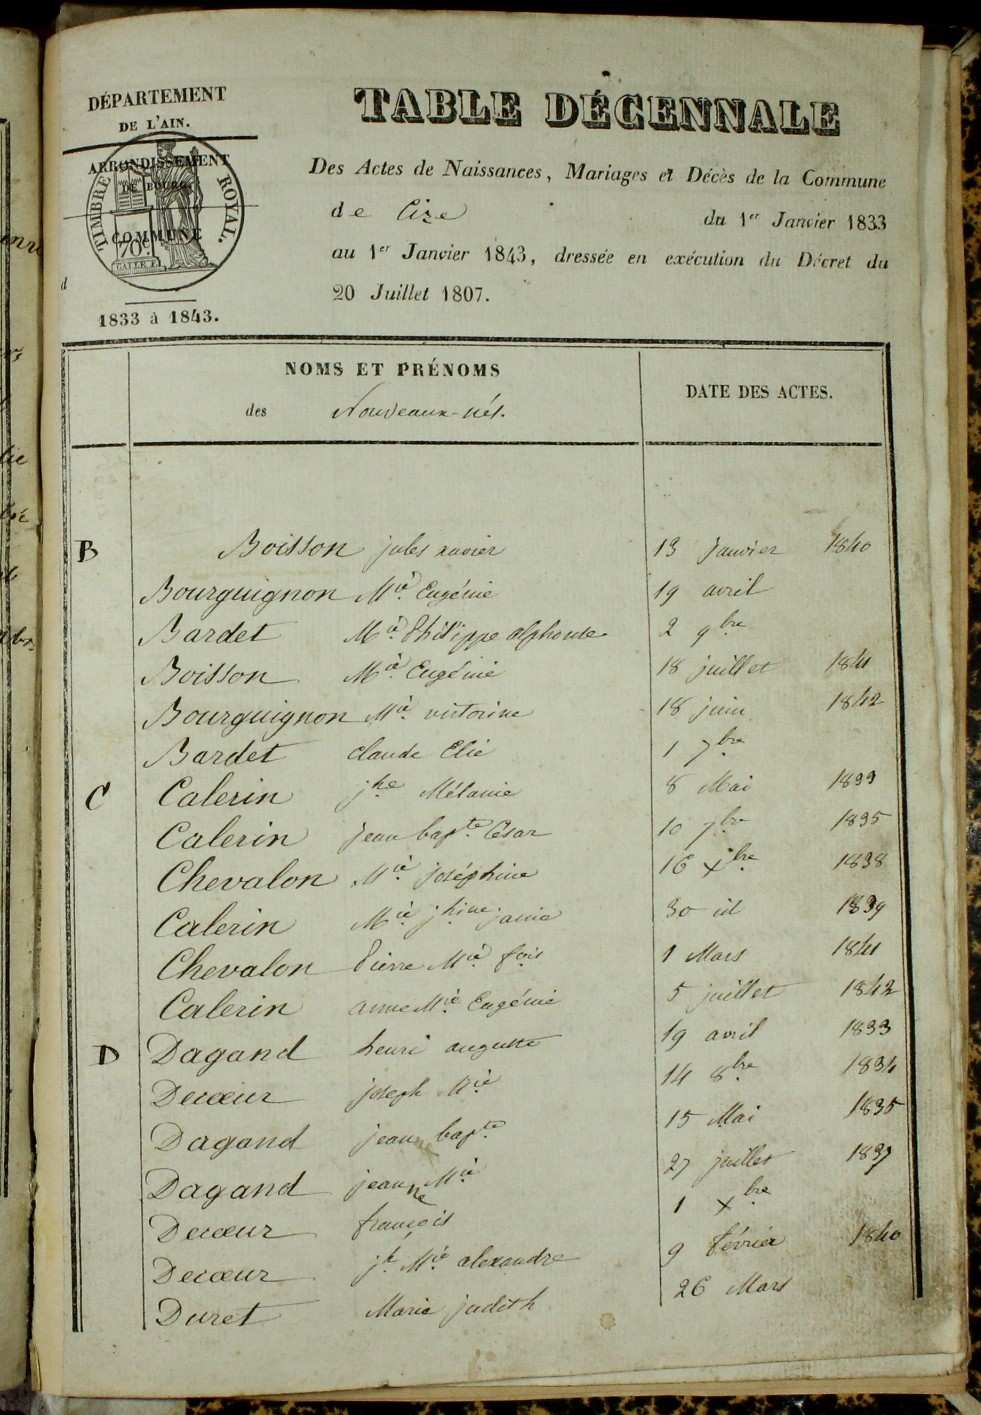 DÉPARTEMENT
DE L'AIN.
ARRONDISSEMENT
DE BOURG
COMMUNE
TIMBRE ROYAL.
70c
1833 à 1843.
TABLE DÉCENNALE
Des Actes de Naissances, Mariages et Décès de la Commune
de Cize du 1er Janvier 1833
au 1er Janvier 1843, dressée en exécution du Décret du
20 Juillet 1807.
NOMS ET PRÉNOMS
des Nouveaux-nés.
DATE DES ACTES.
B Boisson jules xavier 13 Janvier 1840
Bourguignon Mie Eugénie 19 avril
Bardet Mie Philippe alphonse 2 9bre
Boisson Mie Eugénie 18 juillet 1841
Bourguignon Mie victorine 18 juin 1842
Bardet claude Elie 1 7bre
C Calerin jhe Mélanie 8 Mai 1833
Calerin jean bapte César 10 7bre 1835
Chevalon Mie joséphine 16 xbre 1838
Calerin Mie jhine janie 30 id 1839
Chevalon Pierre Mie fois 1 Mars 1841
Calerin anne Mie Eugénie 5 juillet 1842
D Dagand henri auguste 19 avril 1833
Decœur joseph Mie 14 8bre 1834
Dagand jean bapte 15 Mai 1835
Dagand jeanne Mie 27 juillet 1837
Decœur françois 1 xbre
Decœur jh Mie alexandre 9 février 1840
Duret Marie judith 26 Mars